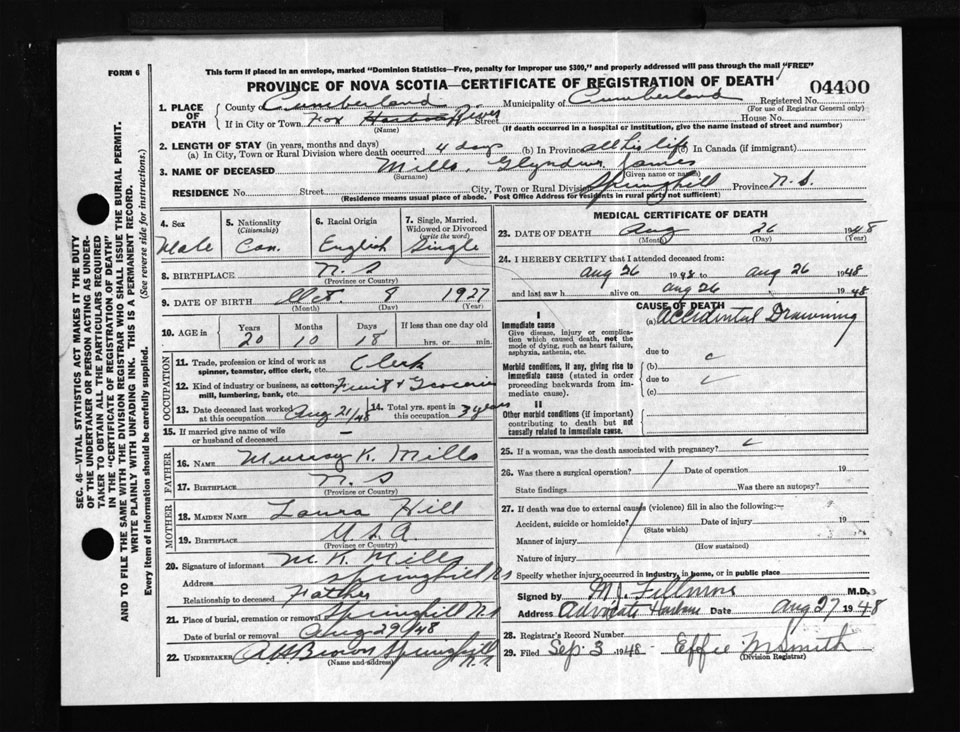 FORM 6
This form if placed in an envelope, marked "Dominion Statistics—Free, penalty for improper use $300," and properly addressed will pass through the mail "FREE"
PROVINCE OF NOVA SCOTIA—CERTIFICATE OF REGISTRATION OF DEATH
04400
SEC. 46—VITAL STATISTICS ACT MAKES IT THE DUTY
OF THE UNDERTAKER OR PERSON ACTING AS UNDER-
TAKER TO OBTAIN ALL THE PARTICULARS REQUIRED
IN THE "CERTIFICATE OF REGISTRATION OF DEATH"
AND TO FILE THE SAME WITH THE DIVISION REGISTRAR WHO SHALL ISSUE THE BURIAL PERMIT.
WRITE PLAINLY WITH UNFADING INK. THIS IS A PERMANENT RECORD.
Every item of information should be carefully supplied. (See reverse side for instructions.)
1. PLACE OF DEATH
County of Cumberland Municipality of Cumberland Registered No.
(For use of Registrar General only)
If in City or Town Fox Harbour River Street House No.
(Name) (If death occurred in a hospital or institution, give the name instead of street and number)
2. LENGTH OF STAY (in years, months and days)
(a) In City, Town or Rural Division where death occurred 4 days (b) In Province all his life (c) In Canada (if immigrant)
3. NAME OF DECEASED Mills, Glyndwr James
(Surname) (Given name or names)
RESIDENCE No. Street City, Town or Rural Division Springhill Province N.S.
(Residence means usual place of abode. Post Office Address for residents in rural parts not sufficient)
4. Sex Male
5. Nationality (Citizenship) Can.
6. Racial Origin English
7. Single, Married, Widowed or Divorced (write the word) Single
8. BIRTHPLACE N.S
(Province or Country)
9. DATE OF BIRTH Oct. 8 1927
(Month) (Day) (Year)
10. AGE in Years 20 Months 10 Days 18 If less than one day old hrs. or min.
OCCUPATION
11. Trade, profession or kind of work as spinner, teamster, office clerk, etc. Clerk
12. Kind of industry or business, as cotton mill, lumbering, bank, etc. Fruit & Groceries
13. Date deceased last worked at this occupation Aug 21/48
14. Total yrs. spent in this occupation 3 years
15. If married give name of wife or husband of deceased
FATHER
16. NAME Murray K. Mills
17. BIRTHPLACE N.S
(Province or Country)
MOTHER
18. MAIDEN NAME Laura Hill
19. BIRTHPLACE U.S.A
(Province or Country)
20. Signature of informant M. K. Mills
Address Springhill NS
Relationship to deceased Father
21. Place of burial, cremation or removal Springhill N.S
Date of burial or removal Aug 29/48
22. UNDERTAKER AH Brown Springhill N.S.
(Name and address)
MEDICAL CERTIFICATE OF DEATH
23. DATE OF DEATH Aug 26 1948
(Month) (Day) (Year)
24. I HEREBY CERTIFY that I attended deceased from:
aug 26 1948 to aug 26 1948
and last saw h alive on aug 26 1948
CAUSE OF DEATH
I
Immediate cause
Give disease, injury or complication which caused death, not the mode of dying, such as heart failure, asphyxia, asthenia, etc.
(a) Accidental Drowning
due to
Morbid conditions, if any, giving rise to immediate cause (stated in order proceeding backwards from immediate cause).
(b)
due to
(c)
II
Other morbid conditions (if important) contributing to death but not causally related to immediate cause.
25. If a woman, was the death associated with pregnancy?
26. Was there a surgical operation? Date of operation 19
State findings Was there an autopsy?
27. If death was due to external causes (violence) fill in also the following:—
Accident, suicide or homicide? Date of injury 19
(State which)
Manner of injury
(How sustained)
Nature of injury
Specify whether injury occurred in industry, in home, or in public place
Signed by M. Fillmore M.D.
Address Advocate Harbour Date Aug 27 1948
28. Registrar's Record Number
29. Filed Sep. 3 1948 Effie M Smith
(Division Registrar)